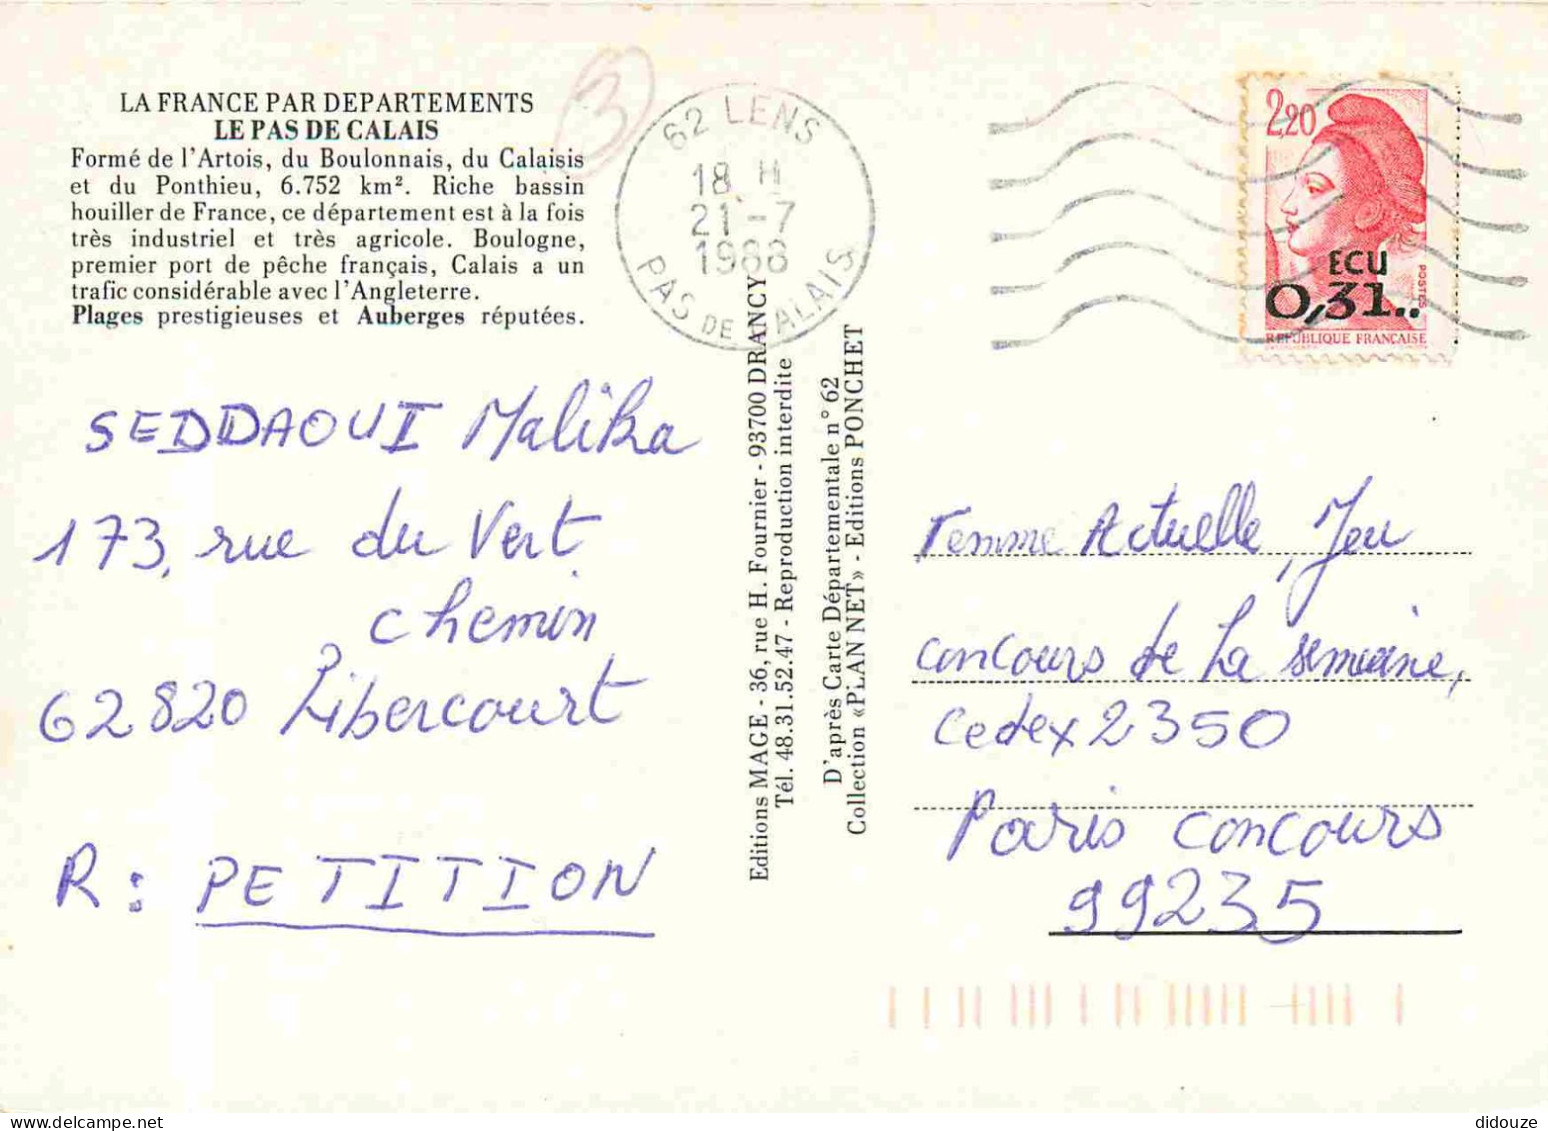 LA FRANCE PAR DEPARTEMENTS
LE PAS DE CALAIS
Formé de l'Artois, du Boulonnais, du Calaisis
et du Ponthieu, 6.752 km². Riche bassin
houiller de France, ce département est à la fois
très industriel et très agricole. Boulogne,
premier port de pêche français, Calais a un
trafic considérable avec l'Angleterre.
Plages prestigieuses et Auberges réputées.
3
62 LENS
18 H
21-7
1988
PAS DE CALAIS
2,20
ECU
0,31..
POSTES
REPUBLIQUE FRANÇAISE
SEDDAOUI Malika
173, rue du Vert
chemin
62820 Libercourt
R: PETITION
Editions MAGE - 36, rue H. Fournier - 93700 DRANCY
Tél. 48.31.52.47 - Reproduction interdite
D'après Carte Départementale n° 62
Collection «PLAN NET» - Editions PONCHET
Femme Actuelle, Jeu
concours de La semaine,
Cedex 2350
Paris concours
99235
didouze for Delcampe.net